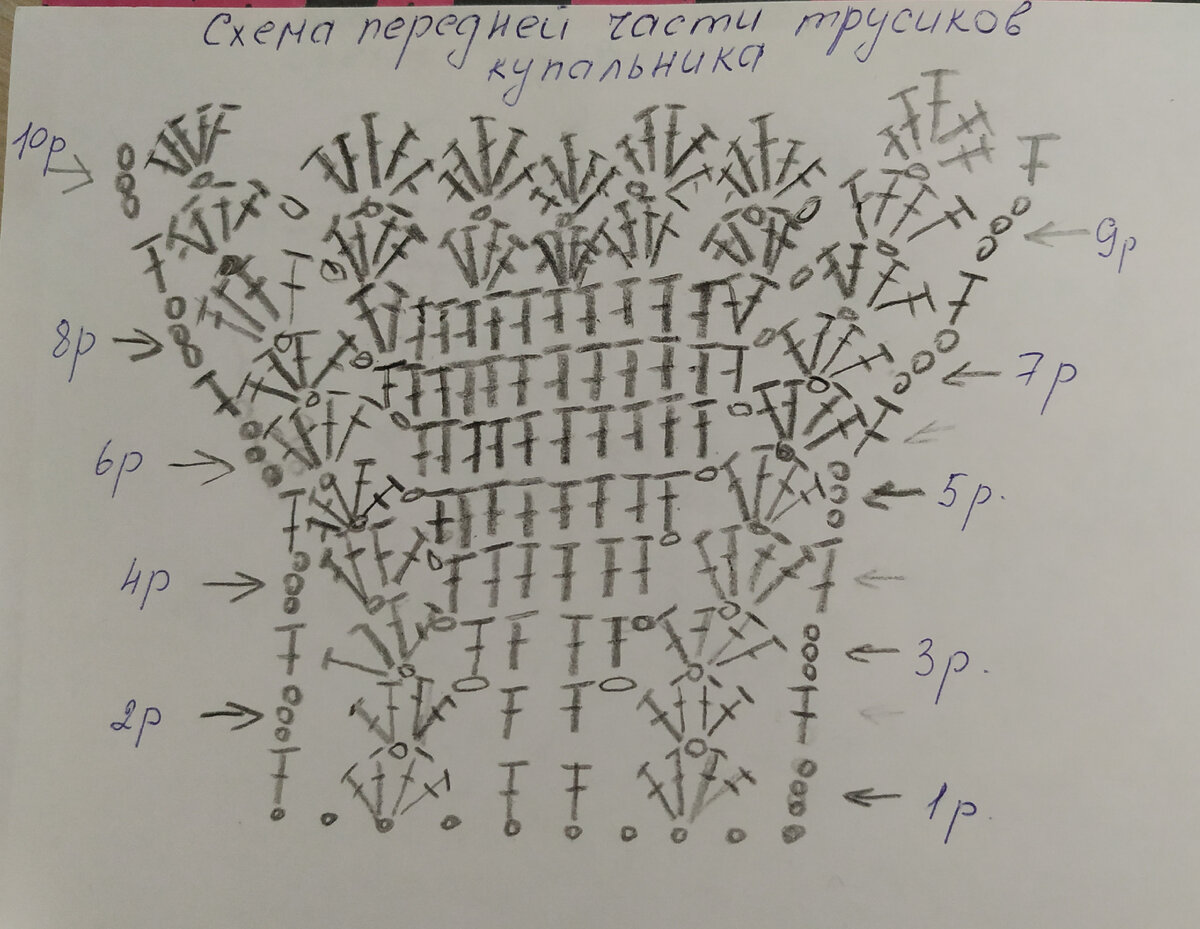 Схема передней части трусиков
купальника
10р
9р
8р
7р
6р
5р.
4р
3р.
2р
1р.